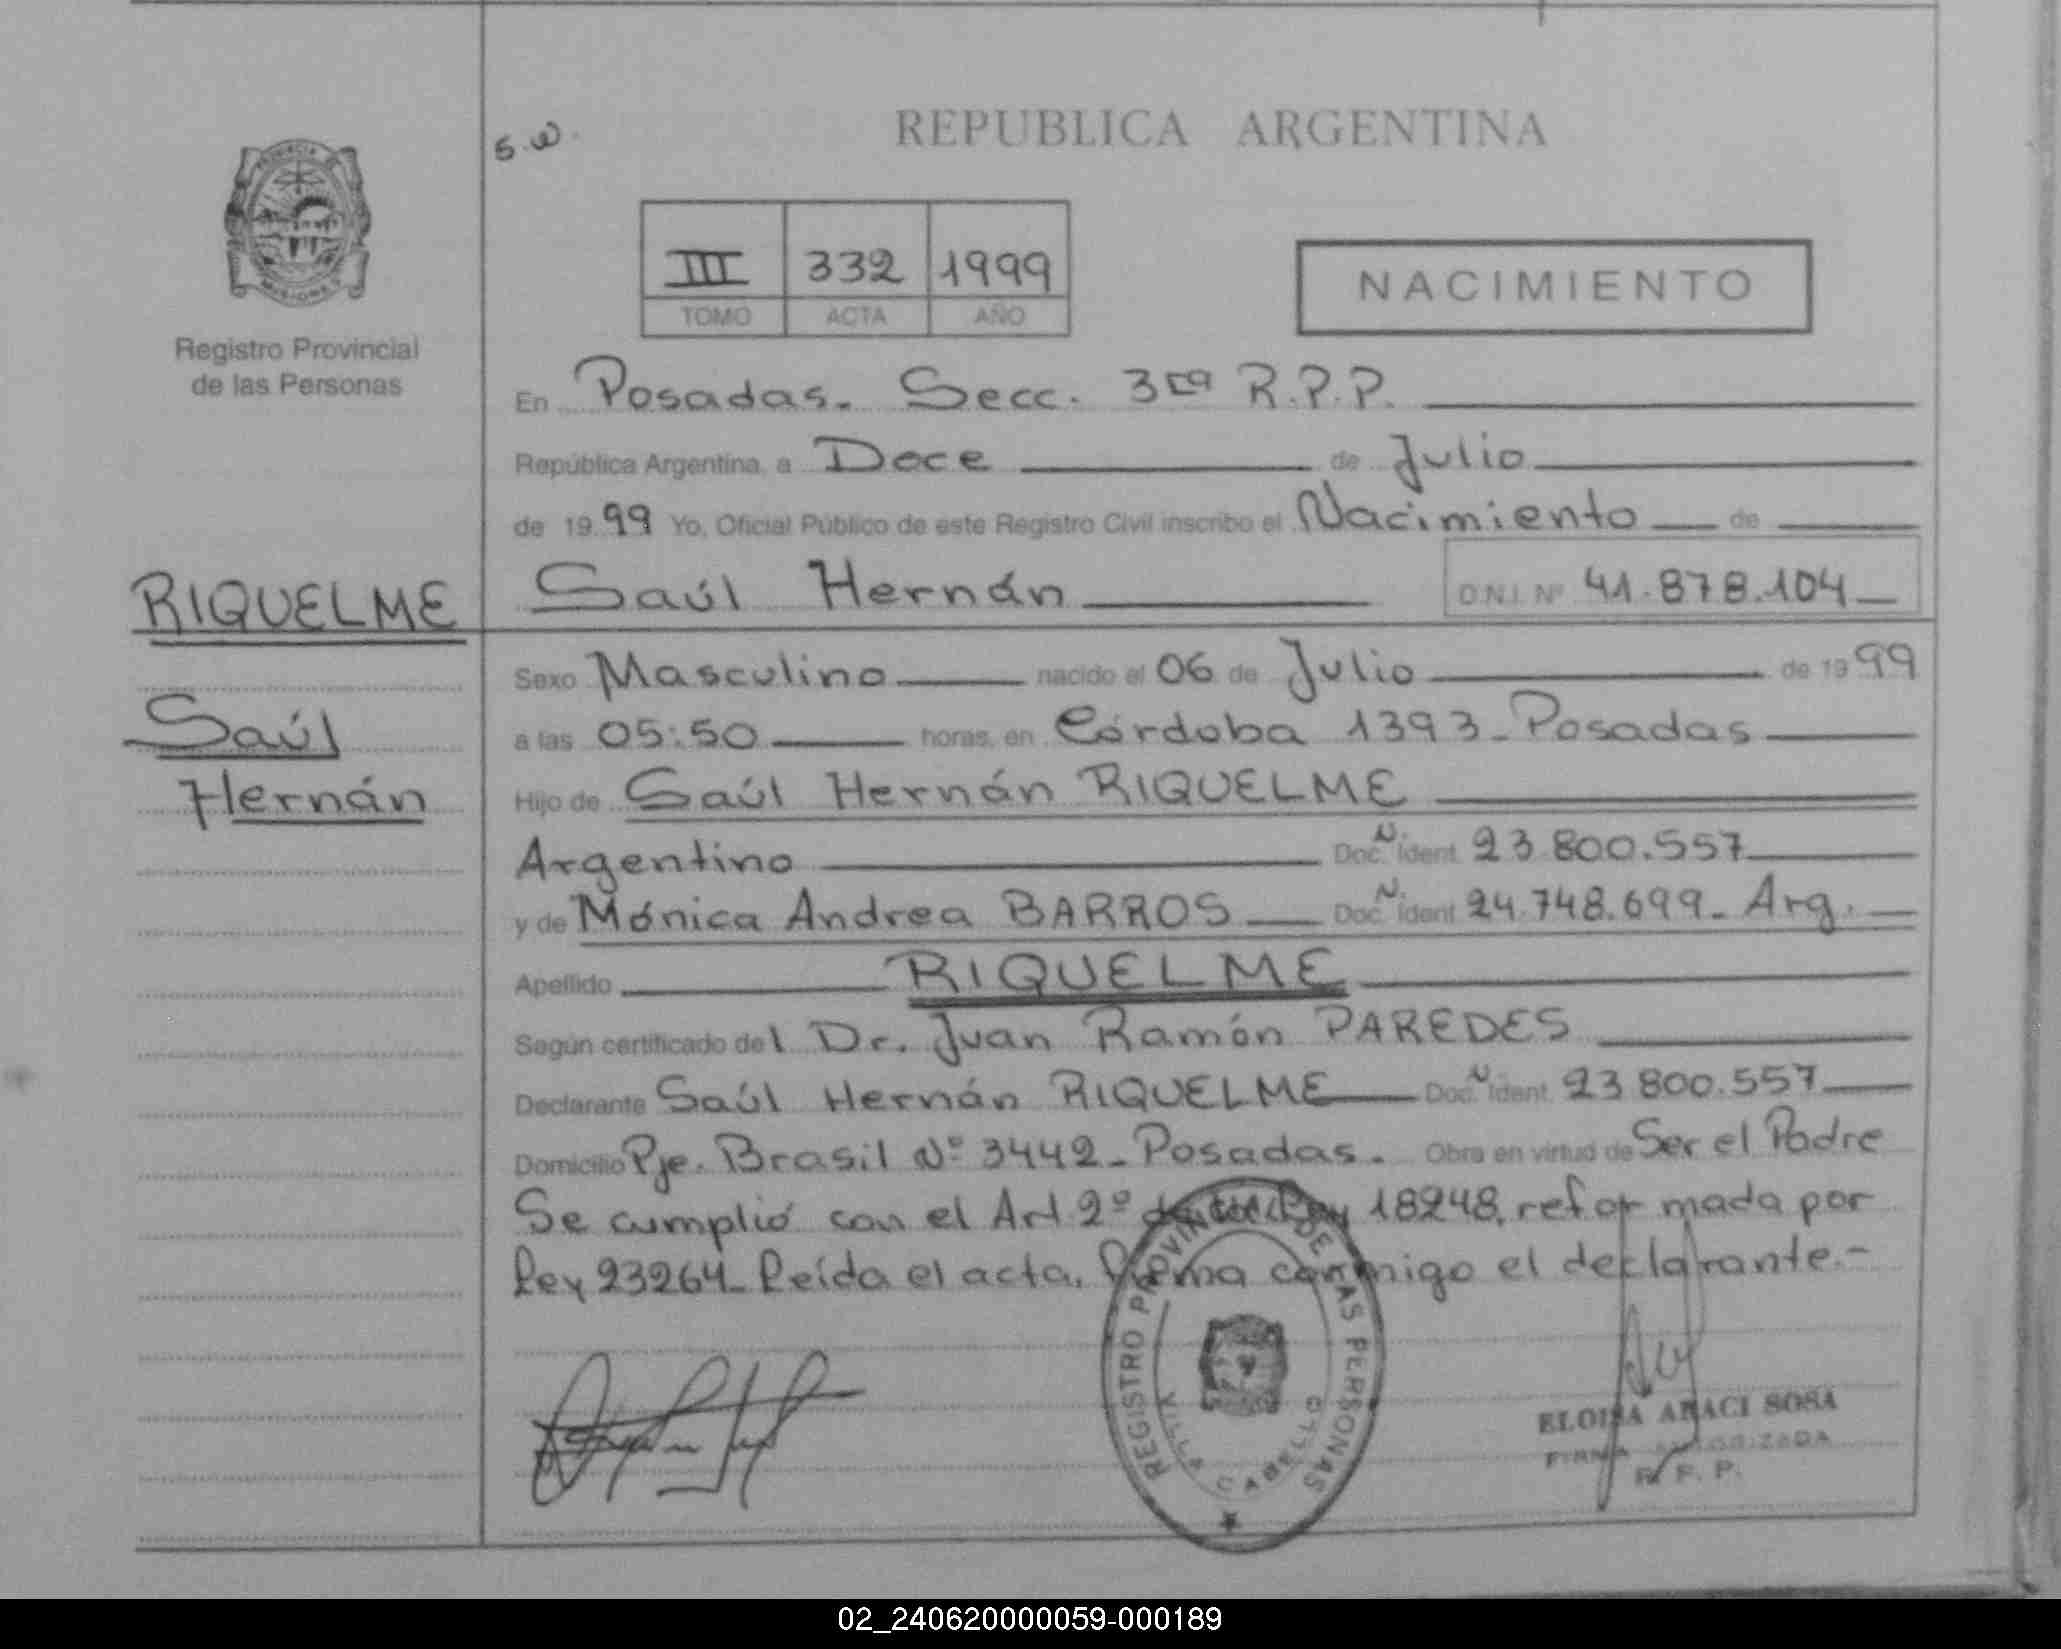 S.W.
REPUBLICA ARGENTINA
PROVINCIA DE
MISIONES
Registro Provincial
de las Personas
III 332 1999
TOMO ACTA AÑO
NACIMIENTO
En Posadas. Secc. 3ra R.P.P.
República Argentina, a Doce de Julio
de 1999 Yo, Oficial Público de este Registro Civil inscribo el Nacimiento de
RIQUELME
Saúl
Hernán
Saúl Hernán D.N.I. Nº 41.878.104
Sexo Masculino nacido el 06 de Julio de 1999
a las 05:50 horas, en Córdoba 1393 - Posadas
Hijo de Saúl Hernán RIQUELME
Argentino Doc. N. Ident. 23.800.557
y de Mónica Andrea BARROS Doc. N. Ident. 24.748.699 - Arg.
Apellido RIQUELME
Según certificado del Dr. Juan Ramón PAREDES
Declarante Saúl Hernán RIQUELME Doc. N. Ident. 23.800.557
Domicilio Pje. Brasil Nº 3442 - Posadas. Obra en virtud de Ser el Padre
Se cumplió con el Art 2º de la Ley 18248, reformada por
Ley 23264 - Leída el acta, firma conmigo el declarante.-
REGISTRO PROVINCIAL DE LAS PERSONAS
VILLA CABELLO
ELOISA ARACI SOSA
FIRMA AUTORIZADA
R. P. P.
02_240620000059-000189